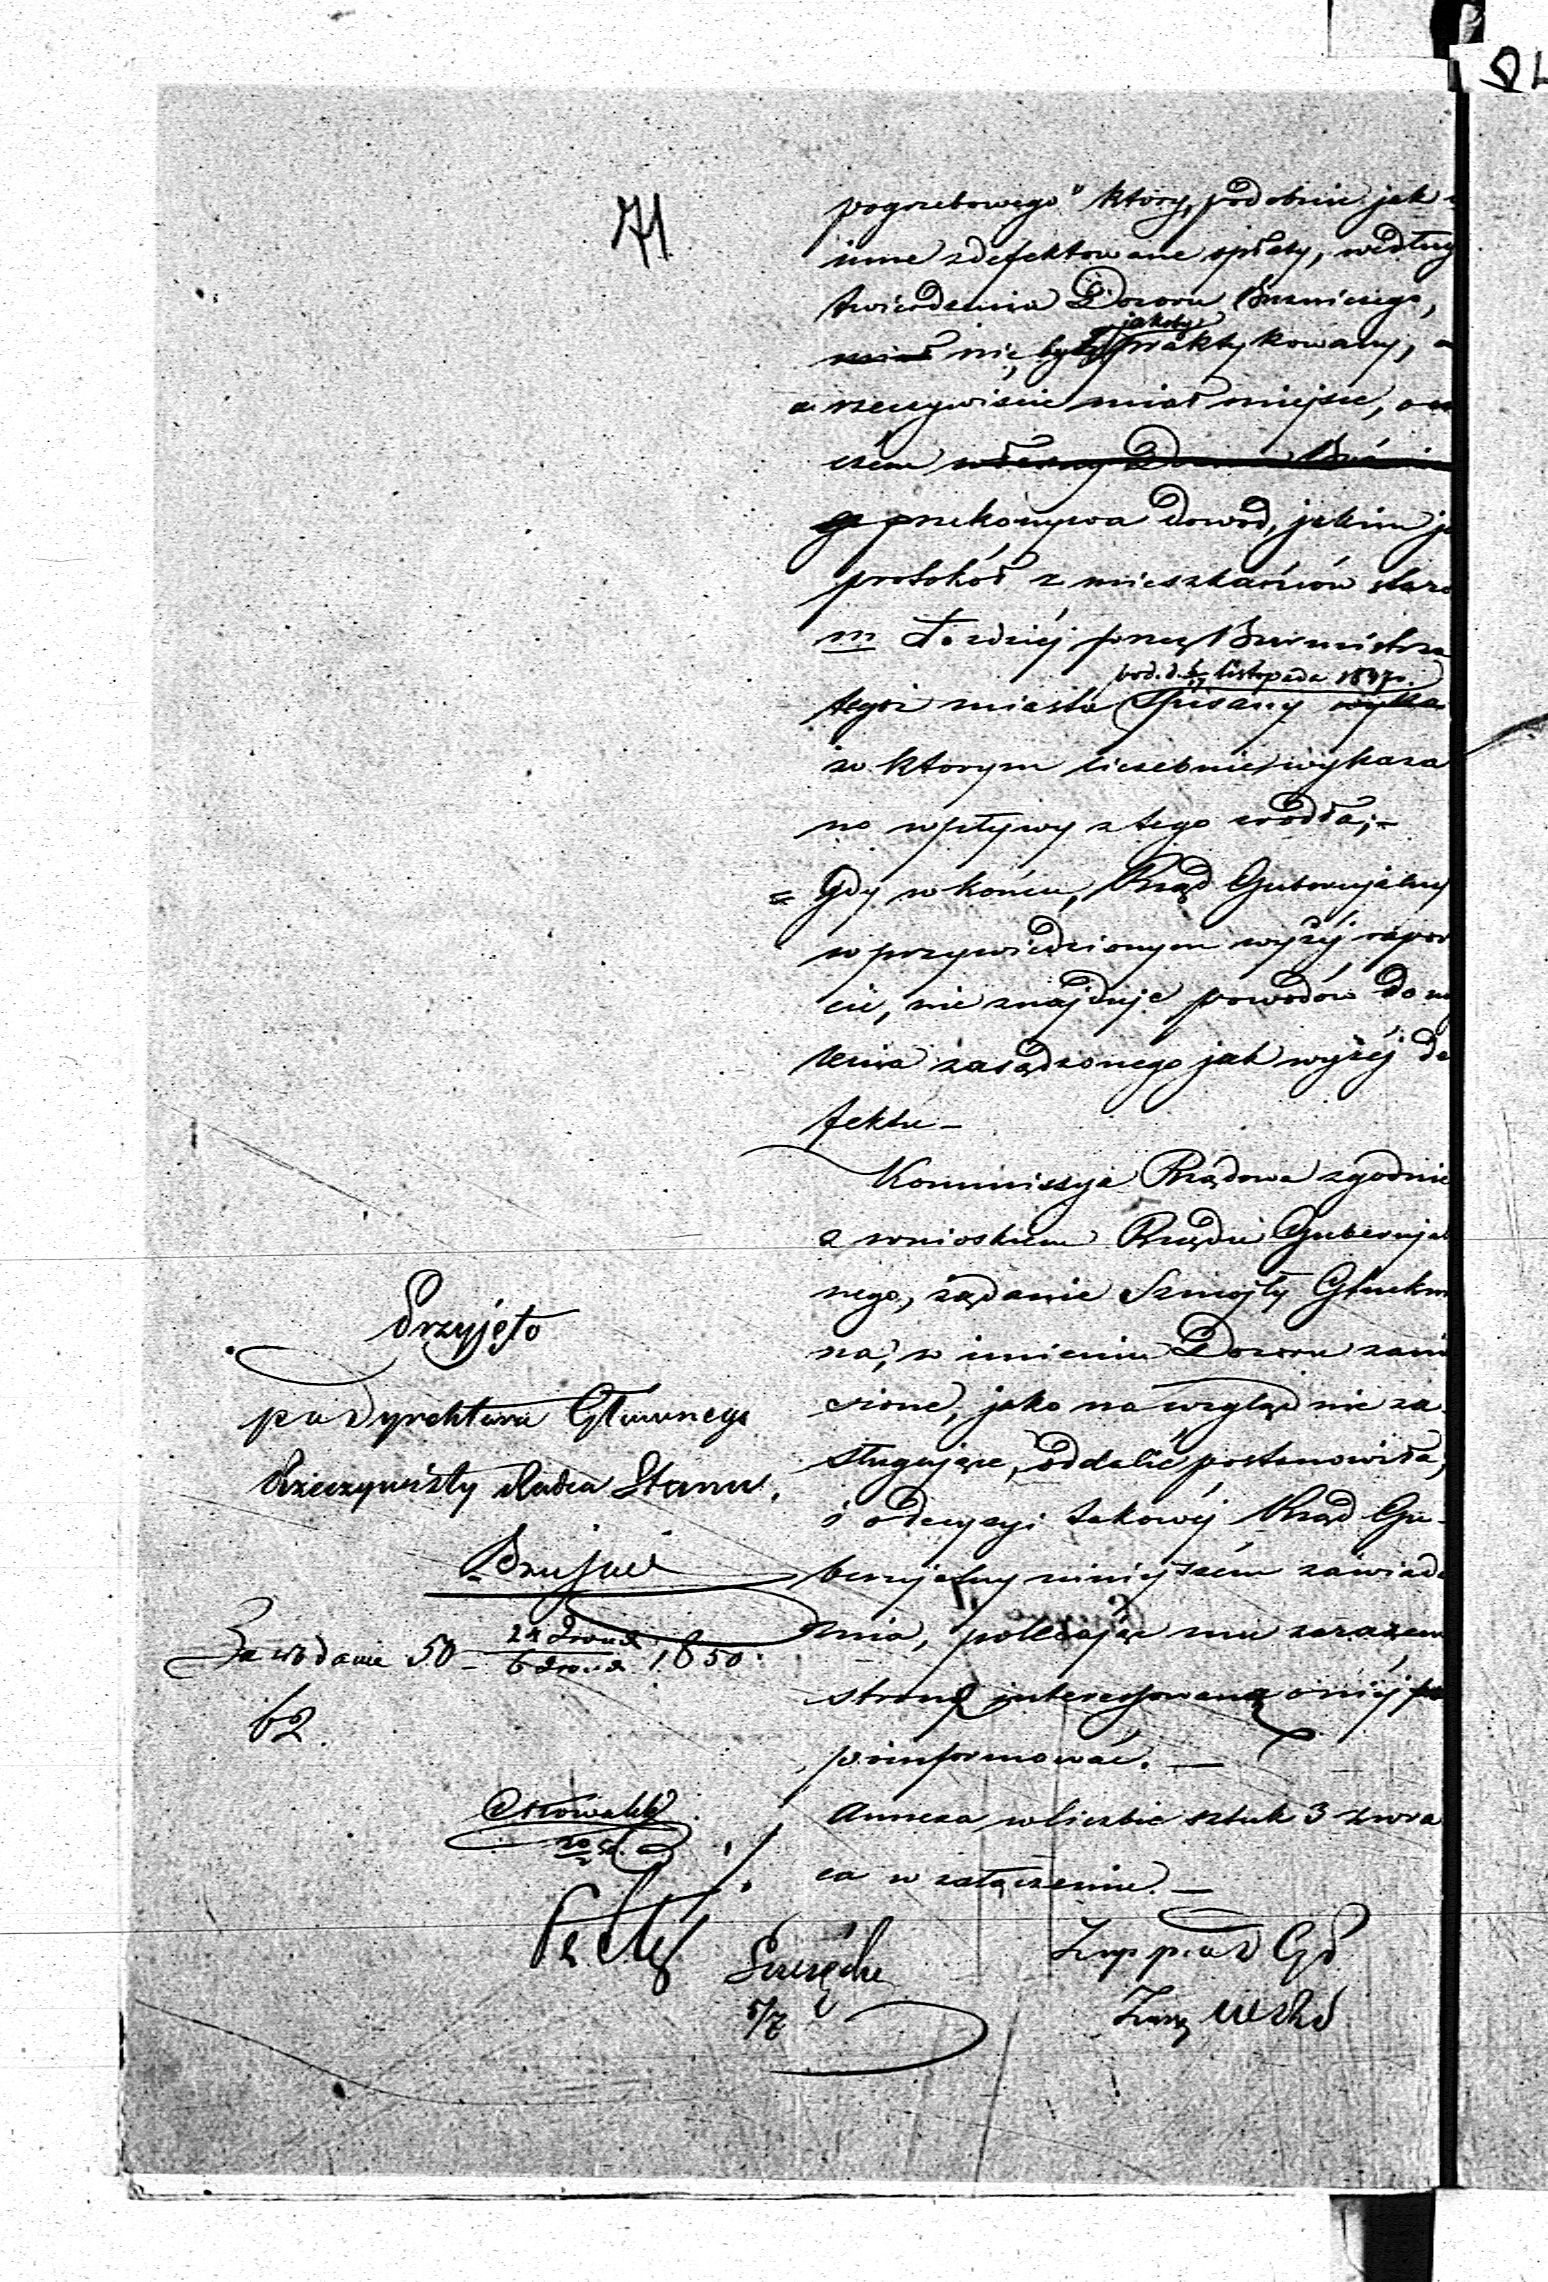 71
pogrzebowego" który, podobnie jak
inne zdefektowane opłaty, według
twierdzenia Dozoru Bożniczego,
jakoby
miał nie był praktykowany,
a rzeczywiście miał miejsce, o
czém własny Dozoru Bóżni
go przekonywa dowod, jakim je
protokół z mieszkańców staro
m Łodziéj przez Burmistrza
pod d. listopada 1847 r.
tegoż miasta spisany wyka
w ktorym liczebnie wykaza
no wpływy z tego źródła;
Gdy w końcu, Rząd Gubernijalny
w przywiedzionym wyżéj rapor
cie, nie znajduje powodów do
lenia zasądzonego jak wyżéj de
fektu
Kommissyja Rządowa zgodnie
z wnioskiem Rządu Gubernijal
nego, żądanie Szmojły Gluckm
na, w imieniu Dozoru zanie
sione, jako na wzgląd nie za
sługujące, oddalić postanowiła,
i o decyzyi takowéj Rząd Gu
bernijalny niniejszém zawiado
mia, polecając mu zarazem
stronę interessowaną o niéj
poinformować.
Annexa w liczbie sztuk 3 zwra
ca w załączeniu.
Przyjęto
p o Dyrektora Głównego
Rzeczywisty Radca Stanu
Za Nº danie 50 1850
62
5/7